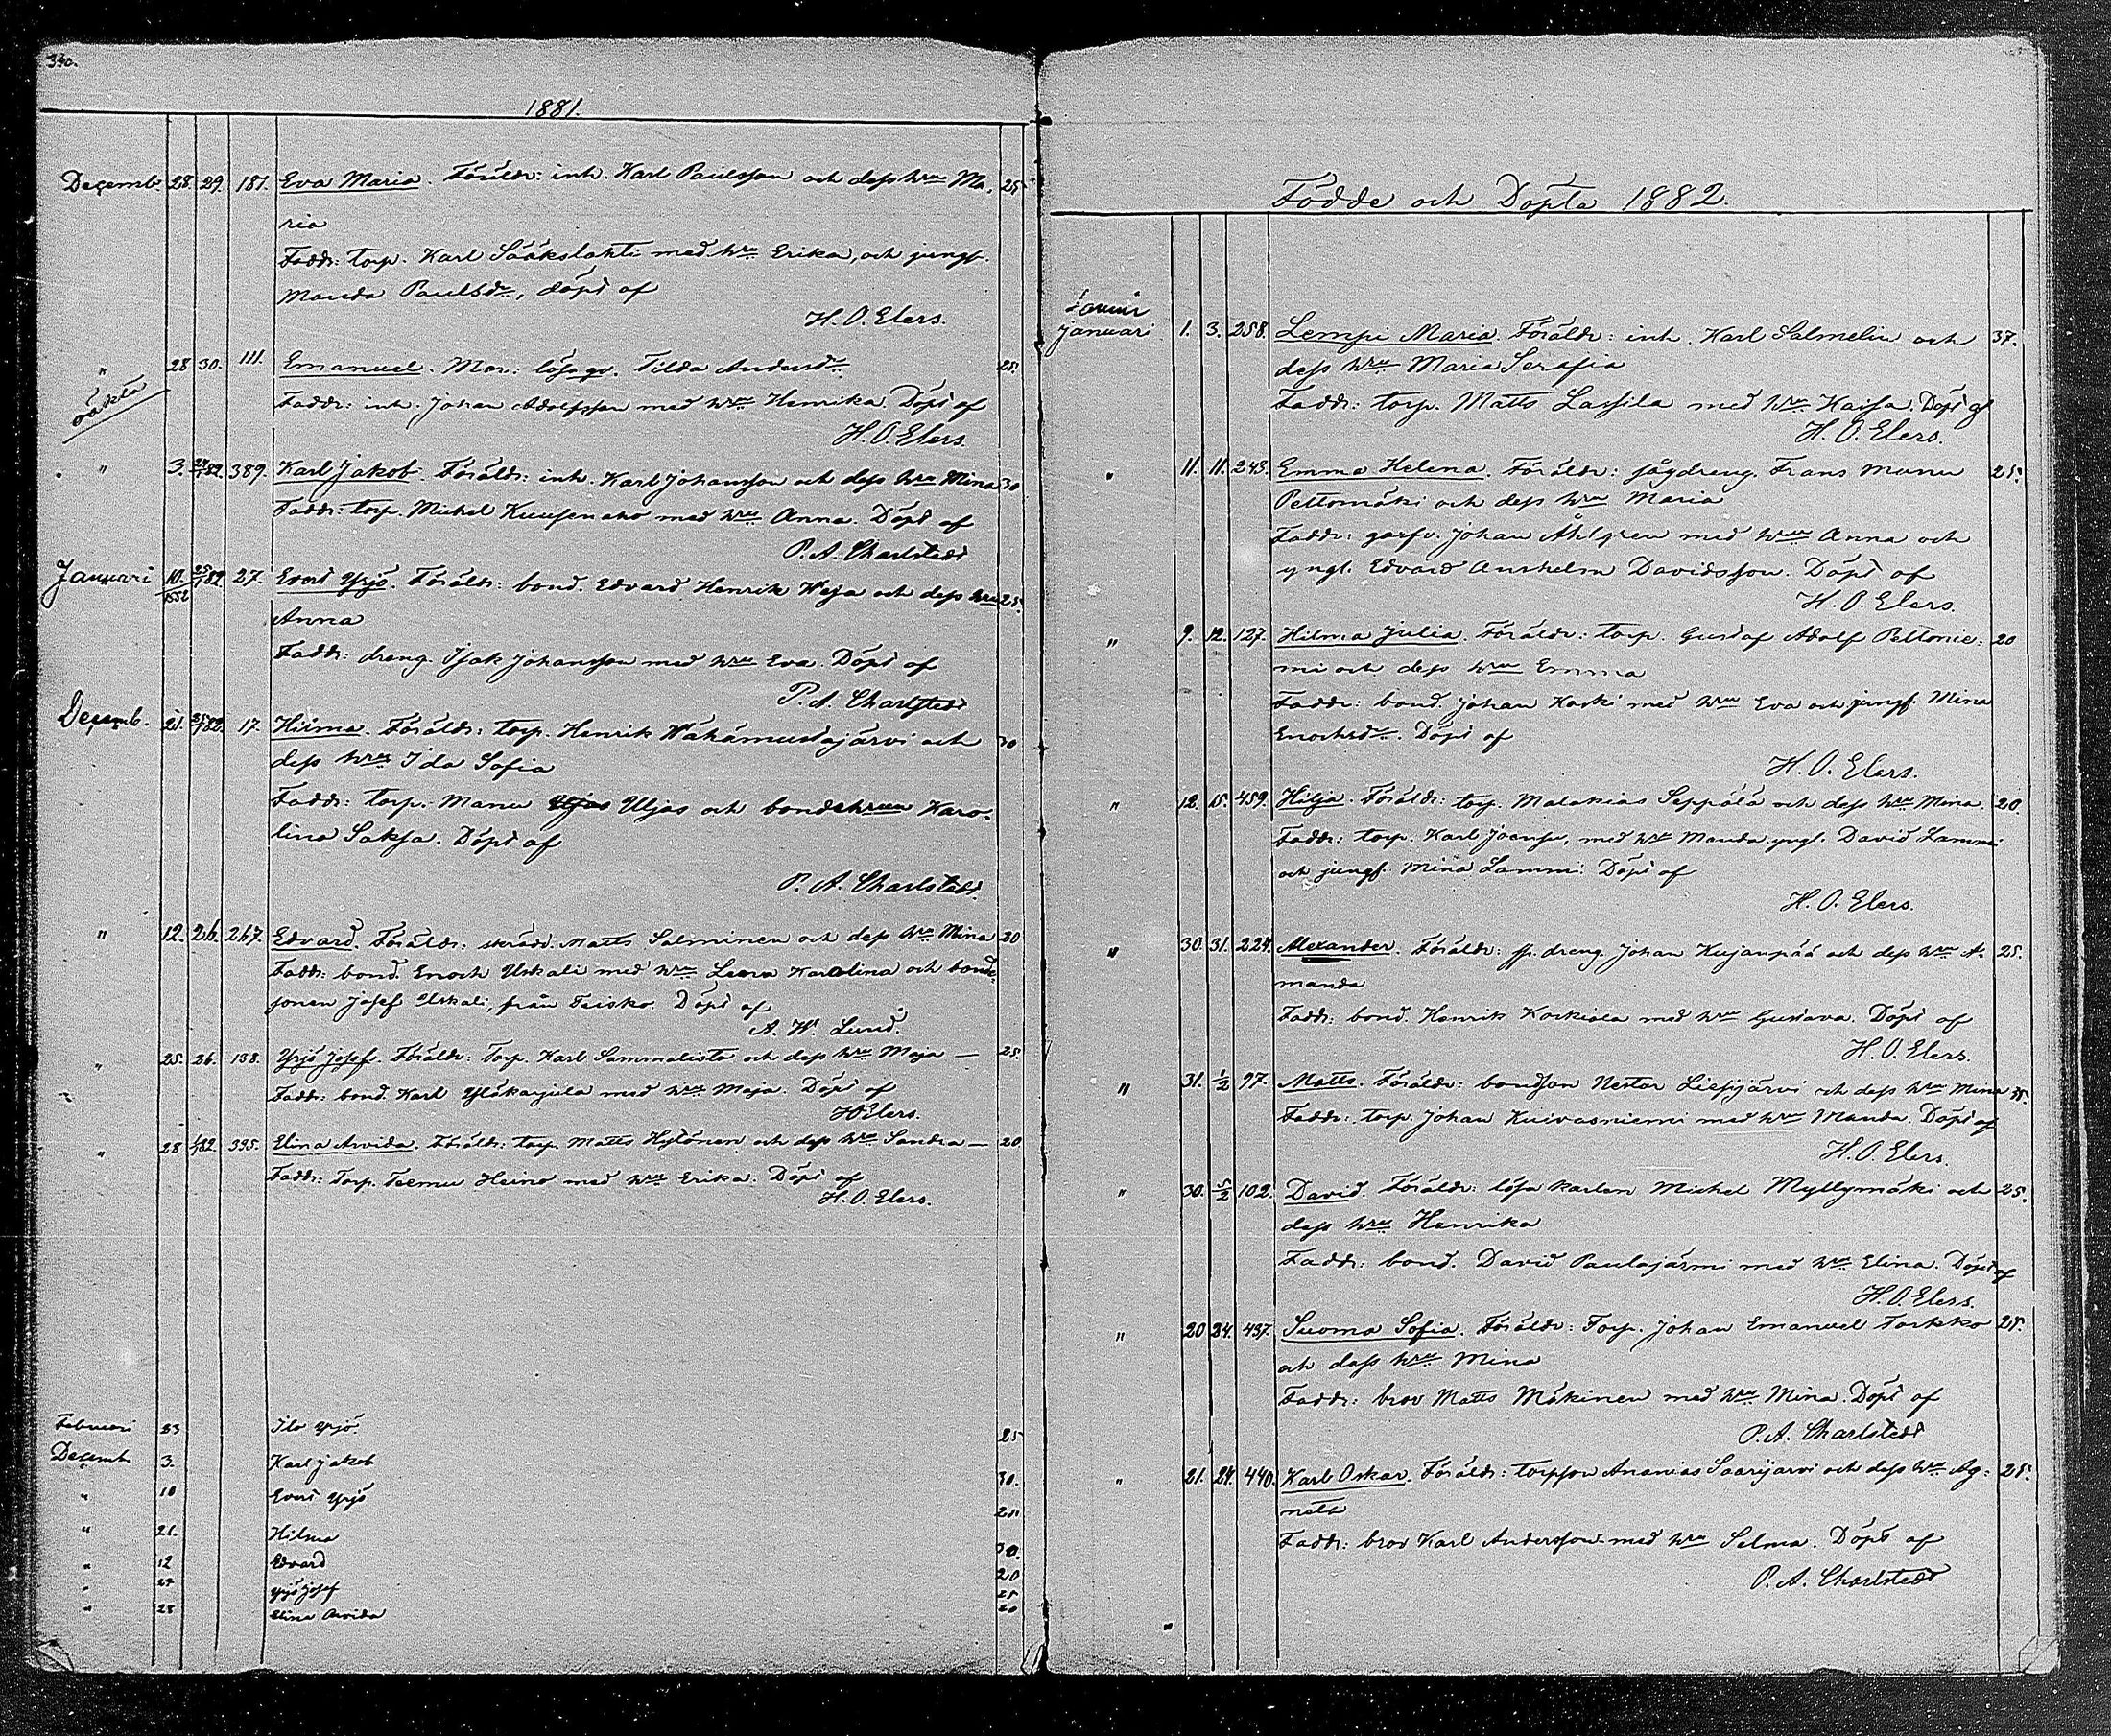 340.
1881.
Decemb. 28. 29. 181. Eva Maria. Föräldr: inh. Karl Paulsson och dess hru Ma- 25
ria
Faddr: torp. Karl Sääkslahti med hru Erika, och jungf.
Manda Paulsdr, döpt af
H. O. Elers.
" 28 30. 111. Emanuel. Mor: lösa qv. Tilda Andersdr. 25.
oäkta
Faddr: inh. Johan Adolfsson med hru Henrika. Döpt af
H. O. Elers.
" 3. 24/1 82. 389. Karl Jakob. Föräldr: inh. Karl Johansson och dess hru Mina 30
Faddr: torp. Mickel Kuusenaho med hru Anna. Döpt af
P. A. Charlstedt
Januari 10./1882 25/1 82. 27. Evert Yrjö. Föräldr: bond. Edvard Henrik Weja och dess hru 25.
Anna
Faddr: dreng. Isak Johansson med hru Eva. Döpt af
P. A. Charlstedt
Decemb. 21. 82. 17. Hilma. Föräldr: torp. Henrik Wähämustajärvi och 30
dess hru Ida Sofia
Faddr: torp. Manu Uljas och bondehrun Karo-
lina Saksa. Döpt af
P. A. Charlstedt.
" 12. 26. 267. Edvard. Föräldr: skrädd. Matts Salminen och dess hru Mina 20
Faddr: bond. Enoch Uskali med hru Leena Karolina och bonde
sonen Josef Uskali, från Teisko. Döpt af
A. W. Lund.
" 25. 26. 138. Yrjö Josef. Föräldr: Torp. Karl Sammalisto och dess hru Maja — 25.
Faddr: bond. Karl Yläkarjula med hru Maja. Döpt af
HOElers.
" 28 1/1 82. 335. Elina Arvida. Föräldr: torp. Matts Hytönen och dess hru Sandra — 20
Faddr: Torp. Teemu Heino med hru Erika. Döpt af
H. O. Elers.
Februari 23 Ilo Yrjö. 25
Decemb. 3. Karl Jakob 30.
" 10 Evert Yrjö 25.
" 21. Hilma 30.
" 12 Edvard 20
" 25 Yrjö Josef 25
" 28 Elina Arvida 20
Födde och Döpta 1882.
Januari 1. 3. 258. Lempi Maria. Föräldr: inh. Karl Salmelin och 37.
dess hru Maria Serafia
Faddr: torp. Matts Lassila med hru Kaisa. Döpt af
H. O. Elers.
" 11. 11. 243. Emma Helena. Föräldr: sågdreng. Frans Manu 25.
Peltomäki och dess hru Maria
Faddr: garfv. Johan Åhlgren med hru Anna och
yngl. Edvard Anshelm Davidsson. Döpt af
H. O. Elers.
" 9. 12. 127. Hilma Julia. Föräldr: torp. Gustaf Adolf Peltonie- 20
mi och dess hru Emma
Faddr: bond. Johan Koski med hru Eva och jungf. Mina
Enochsdr. Döpt af
H. O. Elers.
" 12. 15. 459. Hilja. Föräldr: torp. Malakias Seppälä och dess hru Mina 20.
Faddr: torp. Karl Joensu, med hru Manda. yngl. David Lammi
och jungf. Mina Lammi. Döpt af
H. O. Elers.
" 30. 31. 224. Alexander. Föräldr: dreng. Johan Kujanpää och dess hru A- 25.
manda
Faddr: bond. Henrik Korkiala med hru Gustava. Döpt af
H. O. Elers.
" 31. 1/2 97. Matts. Föräldr: bondson Nestor Liesjärvi och dess hru Mina
Faddr: torp. Johan Kuivasniemi med hru Manda. Döpt af
H. O. Elers.
" 30. 5/2 102. David. Föräldr: lösa karlen Mickel Myllymäki och 25.
dess hru Henrika
Faddr: bond. David Paulajärvi med hru Elina. Döpt af
H. O. Elers.
" 20 24. 437. Suoma Sofia. Föräldr: Torp. Johan Emanuel Torkko 25.
och dess hru Mina
Faddr: bror Matts Mäkinen med hru Mina. Döpt af
P. A. Charlstedt
" 21. 24. 440. Karl Oskar. Föräldr: torpson Ananias Saarijärvi och dess hru Ag- 25.
neta
Faddr: bror Karl Andersson med hru Selma. Döpt af
P. A. Charlstedt